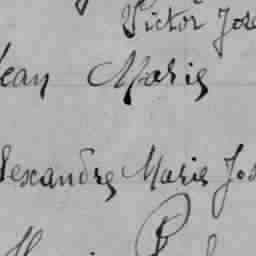 Victor Jose
Jean Marie
Alexandre Marie Jos